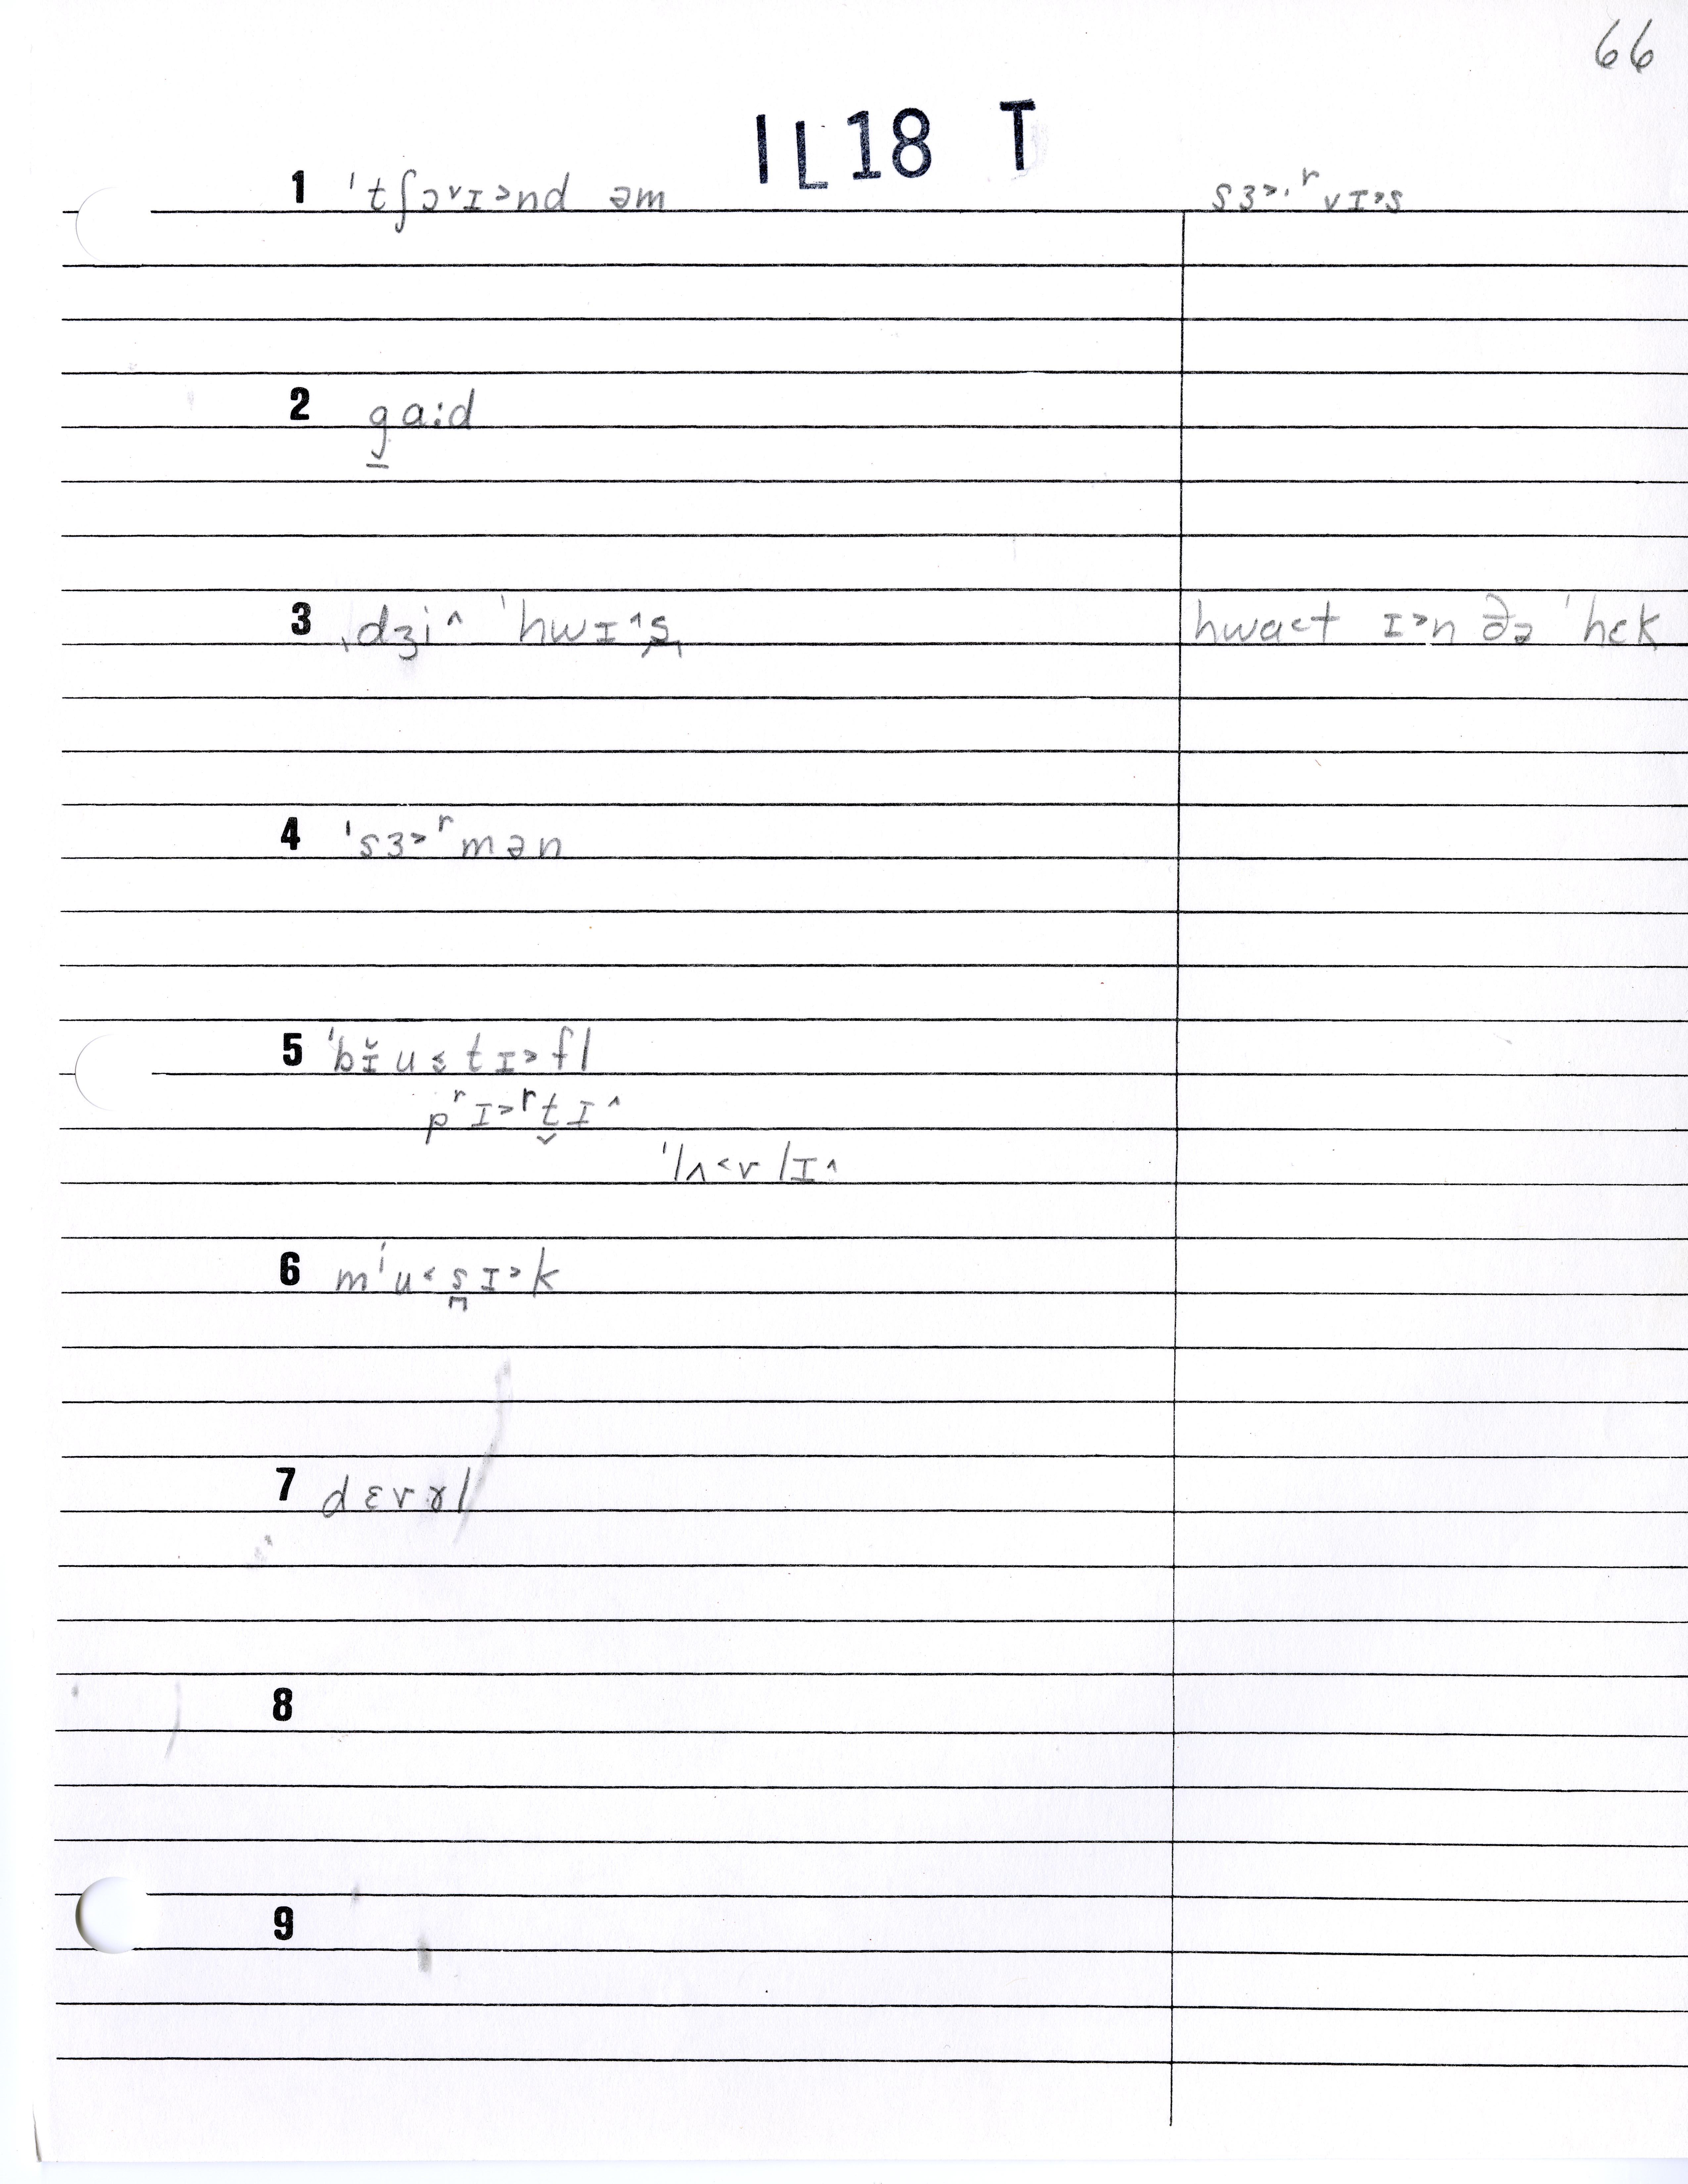 66
IL18 T
1 ˈtʃɔ˅ɪ˃nd əm sɜ˃·ʳvɪ˃s
2 g̠a:d
3 ˌdʒi˄ ˈhwɪ˄s̬ hwa˂t ɪ˃n ðə ˈhɛk
4 ˈsɜ˃ʳmən
5 ˈbɪ̆u˂tɪ˃fl
pʳɪ˃ʳt̬ɪ˄
ˈlʌ˂vlɪ˄
6 mⁱu˂s̪ɪ˃k
7 dɛvɤl
8
9